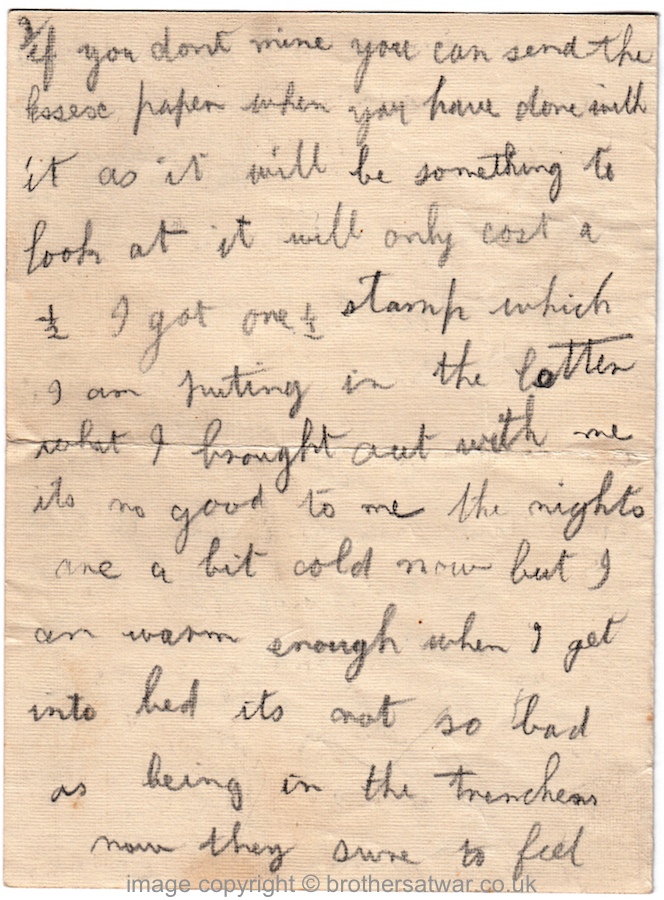 3/
if you dont mine you can send the
Essesc paper when you have done with
it as it will be something to
look at it will only cost a
½ I got one ½ stamp which
I am puting in the lotter
what I brought out with me
its no good to me the nights
are a bit cold now but I
am warm enough when I get
into bed its not so bad
as being in the trenchers
now they sure to feel
image copyright © brothersatwar.co.uk